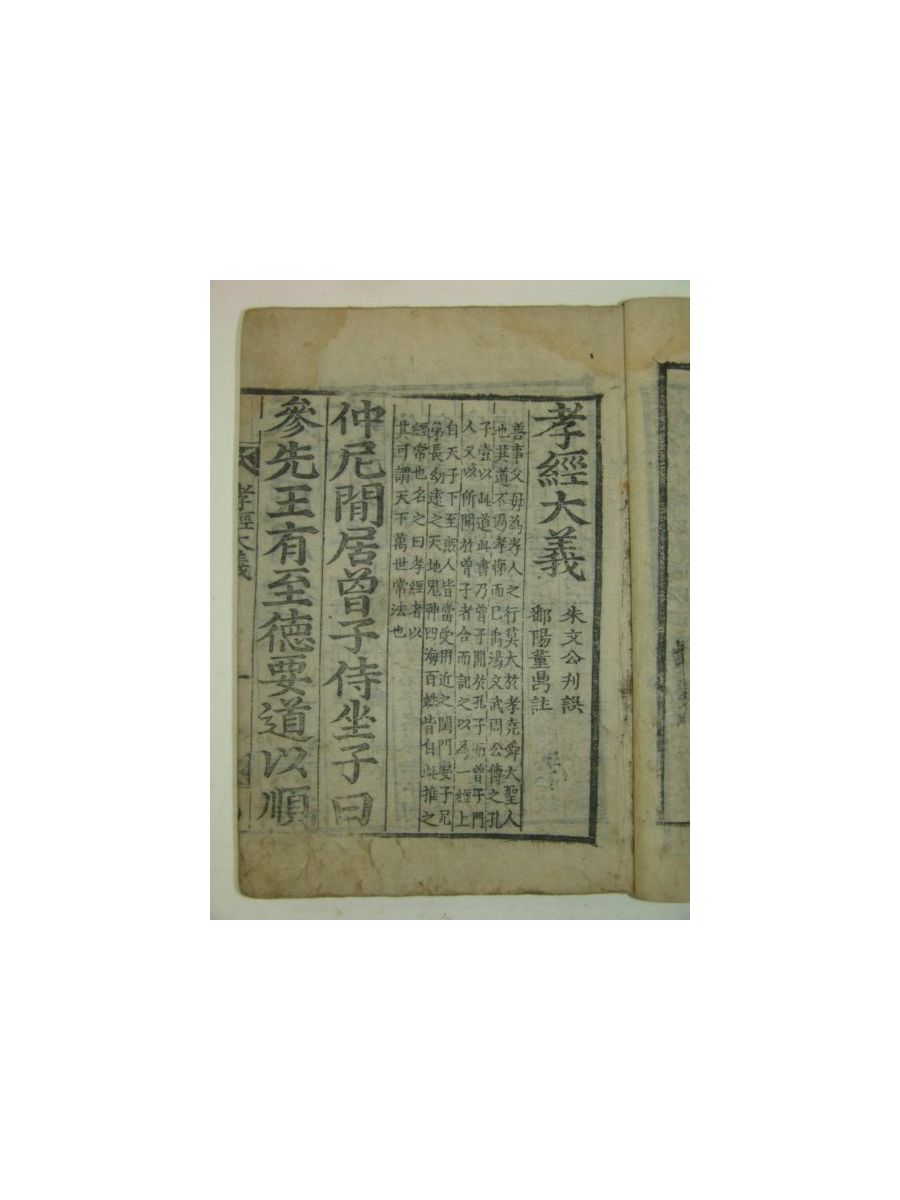 孝經大義
朱文公刊誤
鄱陽董鼎註
善事父母為孝人之行莫大於孝堯舜大聖人
也其道不過孝悌而已禹湯文武周公傳之孔
子壹以此道此書乃曾子聞於孔子而曾子門
人又以所聞於曾子者合而記之以為一經上
自天子下至庶人皆當受用近之閨門妻子兄
弟長幼遠之天地鬼神四海百姓皆自此推之
經常也名之曰孝經者以
其可謂天下萬世常法也
仲尼閒居曾子侍坐子曰
參先王有至德要道以順
孝經大義